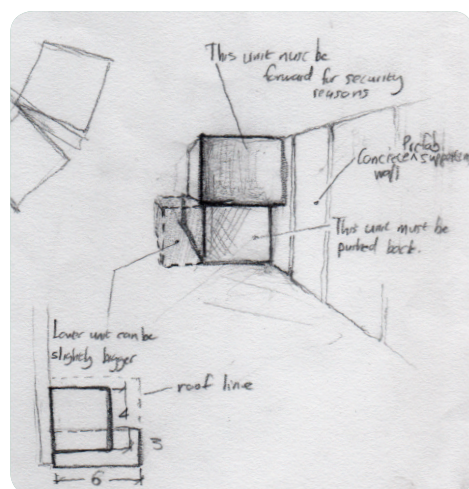 This unit must be
forward for security
reasons
Prefab
Concrete support
wall
This unit must be
pushed back.
Lower unit can be
slightly bigger
roof line
4
3
6